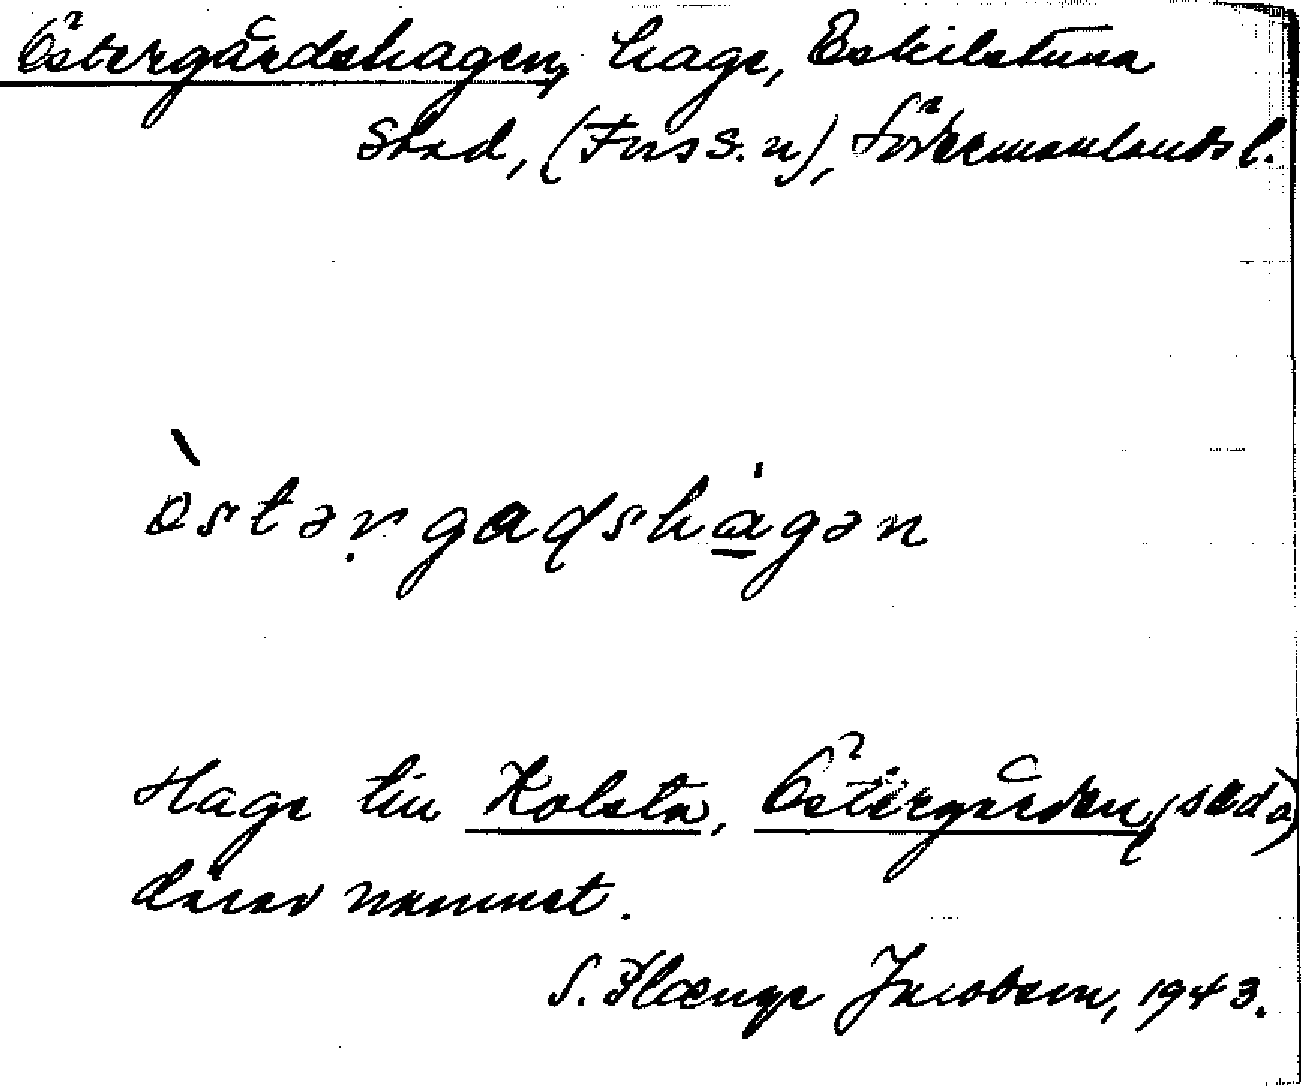 Östergårdshagen, hage, Eskilstuna
Stad, (Fors s:n), Södermanlands l.
òstərgadshágən
Hage till Holsta, Östergården (sed. a)
därav namnet.
S. Flænge Jacobson, 1943.